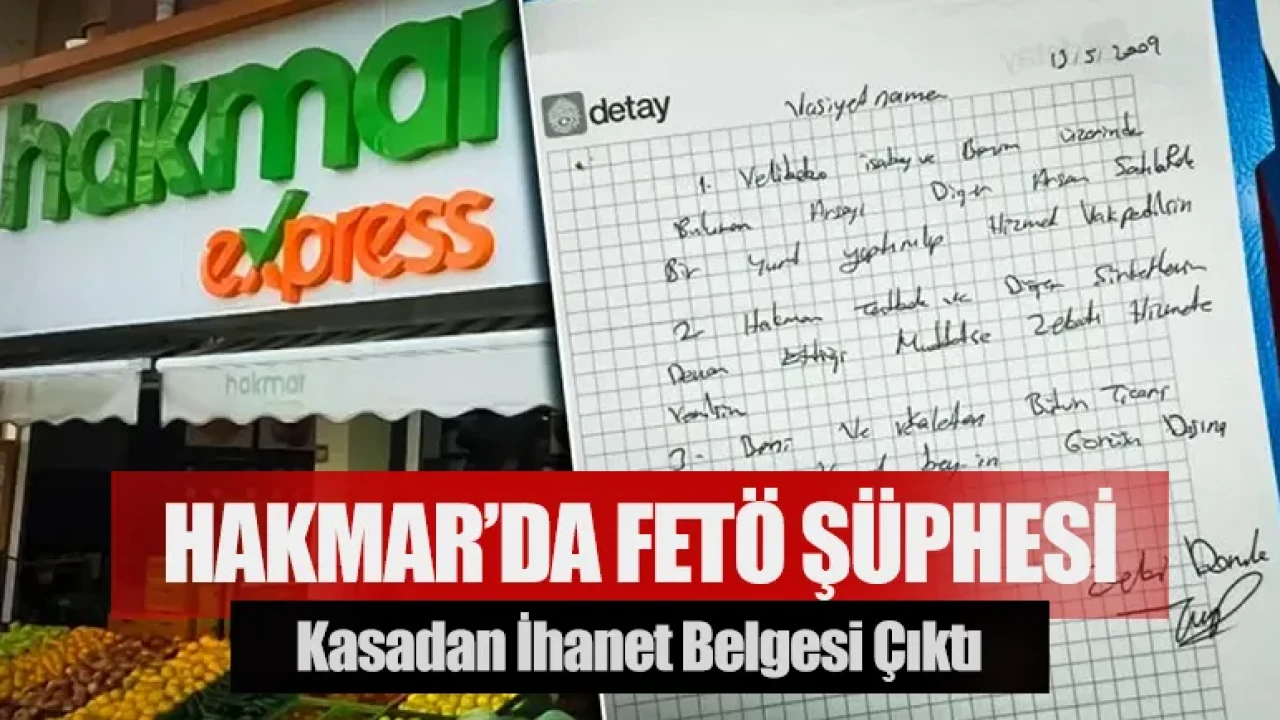 hakmar
express
hakmar
detay
13/5/2009
Vasiyet name
1. ve Benim üzerinde
Bulunan Arsayı Diğer Arsam
Bir yurt yaptırılıp Hizmet Vakpedilsin
2 Hakmar ve Diğer Şirketlerim
Devam Ettiği Müddetçe Zekatı Hizmete
Verilsin
3- Beni Ve Bütün Ticari
bey'in Görüşü Dışına
HAKMAR'DA FETÖ ŞÜPHESİ
Kasadan İhanet Belgesi Çıktı